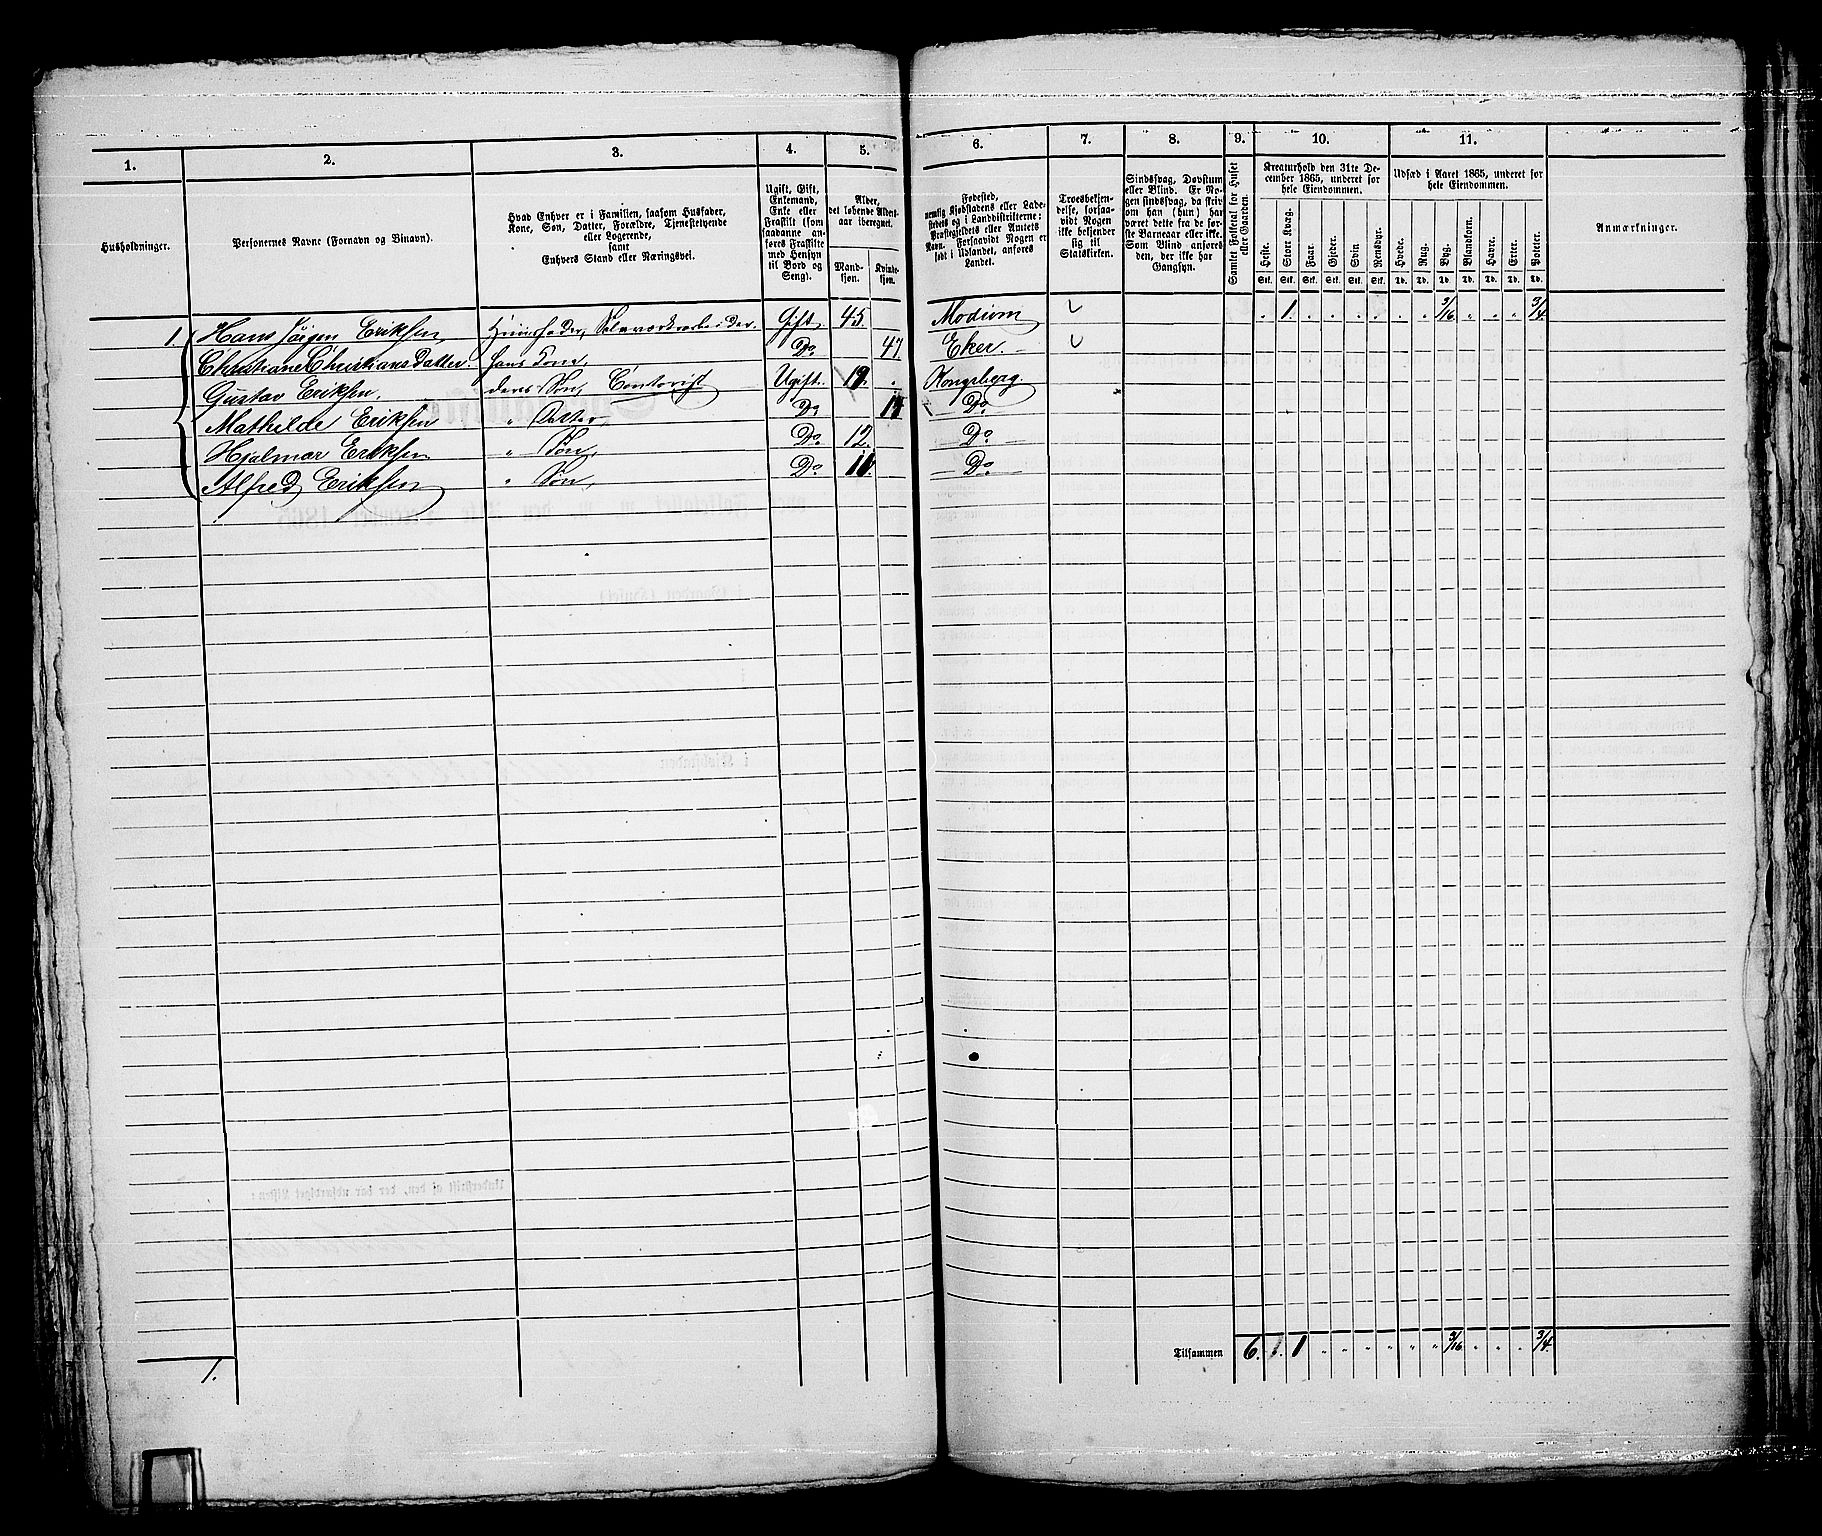 1. 2. 3. 4. 5. 6. 7. 8. 9. 10. 11.
Husholdninger.
Personernes Navne (Fornavn og Binavn).
Hvad Enhver er i Familien, saasom Husfader,
Kone, Søn, Datter, Forældre, Tjenestetyende
eller Logerende,
samt
Enhvers Stand eller Næringsvei.
Ugift, Gift,
Enkemand,
Enke eller
Fraskilt (som
saadanne an-
føres Fraskilte
med Hensyn
til Bord og
Seng).
Alder,
det løbende Alders-
aar iberegnet.
Mand-
kjøn.
Kvinde-
kjøn.
Fødested,
nemlig Kjøbstadens eller Lade-
stedets og i Landdistrikterne:
Præstegjeldets eller Amtets
Navn. Forsaavidt Nogen er
født i Udlandet, anføres
Landet.
Troesbekjen-
delse, forsaa-
vidt Nogen
ikke bekjender
sig til
Statskirken.
Sindssvag, Døvstum
eller Blind. Er No-
gen sindssvag, da skri-
ves om han (hun) har
været dette fra de før-
ste Barneaar eller ikke.
Som Blind anføres
den, der ikke har
Gangsyn.
Samlet Folketal for Huset
eller Gaarden.
Kreaturhold den 31te De-
cember 1865, underet for
hele Eiendommen.
Heste. Stort Kvæg. Faar. Gjeder. Svin. Rensdyr.
Stk. Stk. Stk. Stk. Stk. Stk.
Udsæd i Aaret 1865, underet for
hele Eiendommen.
Hvede. Rug. Byg. Blandkorn. Havre. Erter. Poteter.
Td. Td. Td. Td. Td. Td. Td.
Anmærkninger.
1. Hans Jörgen Eriksen Huusfader, Sölvværksarbeider. Gift 45. Modum 1. 3/16 3/4.
Christiane ChristiansDatter. hans Kone, Do 47. Eker.
Gustav Eriksen, deres Søn, Contorist Ugift. 19. Kongsberg.
Mathilde Eriksen " Datter, Do Do
Hjalmar Eriksen " Søn, Do 12. Do
Alfred Eriksen " Søn, Do Do
1. Tilsammen 6. 1 3/16 3/4.